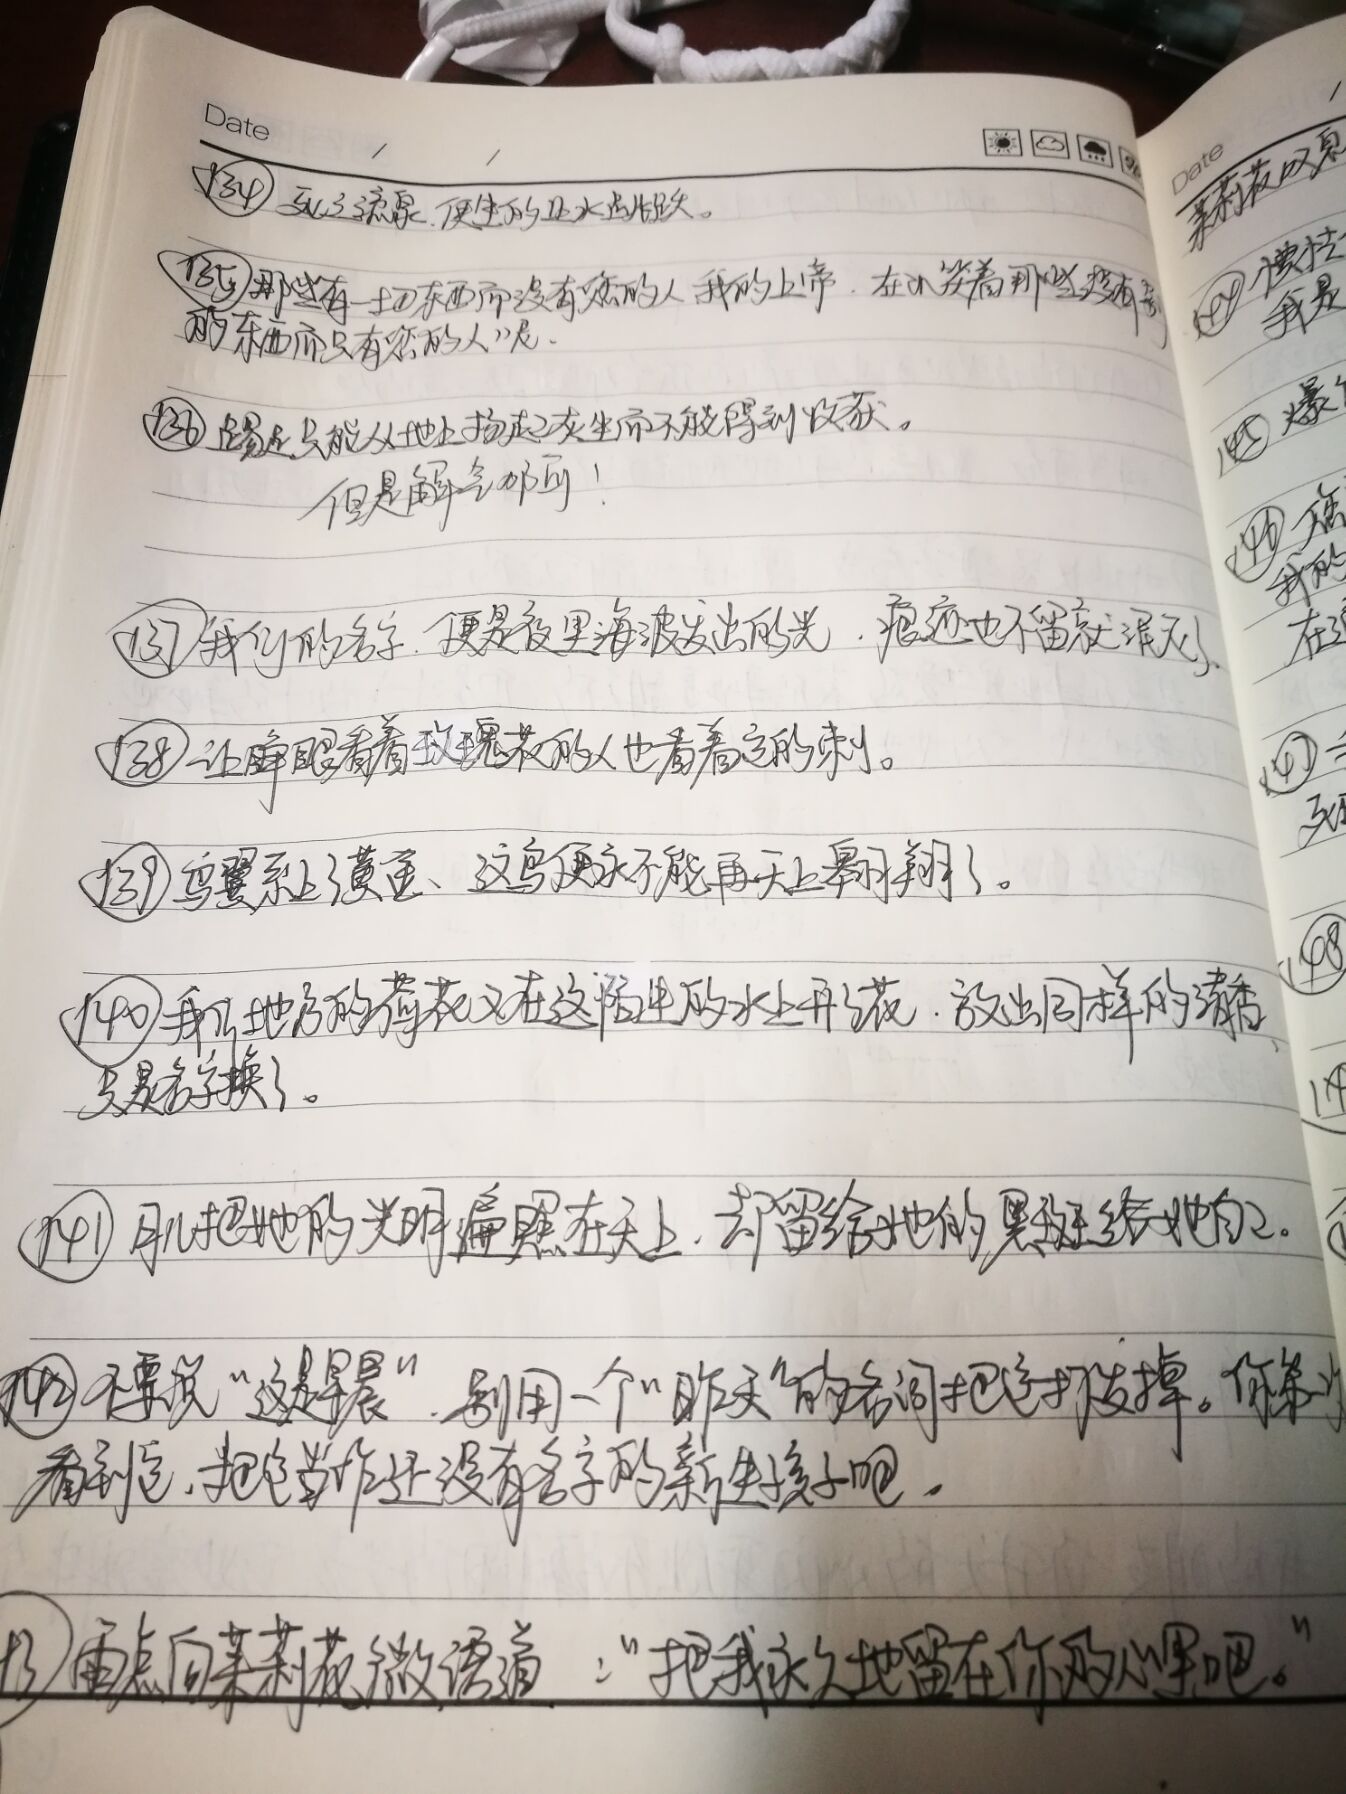 Date / /
134 死了流泉,便生的止水当活跃。
135 那些有一切东西而没有您的人我的上帝,在讥笑着那些没有别
的东西而只有您的人"呢.
136 踢足只能从地上扬起灰尘而不能得到收获。
但是解气那可!
137 我们的名字,便是夜里海波发出的光,痕迹也不留就泯灭了.
138 让睁眼看着玫瑰花的人也看着它的刺。
139 鸟翼系上了黄金、这鸟便永不能再天上翱翔了。
140 我们地方的荷花又在这陌生的水上开了花,放出同样的清香、
只是名字换了。
141 月儿把她的光明遍照在天上,却留给她的黑斑给她自己.
142 不要说"这是早晨",别用一个"昨天"的名词把它打发掉。你第
看到它,把它当作还没有名字的新生孩子吧.
雨点向茉莉花微语道:"把我永久地留在你的心里吧。"
Date /
茉莉花叹息
144
我是
145 爆
146
我的
在
147
148